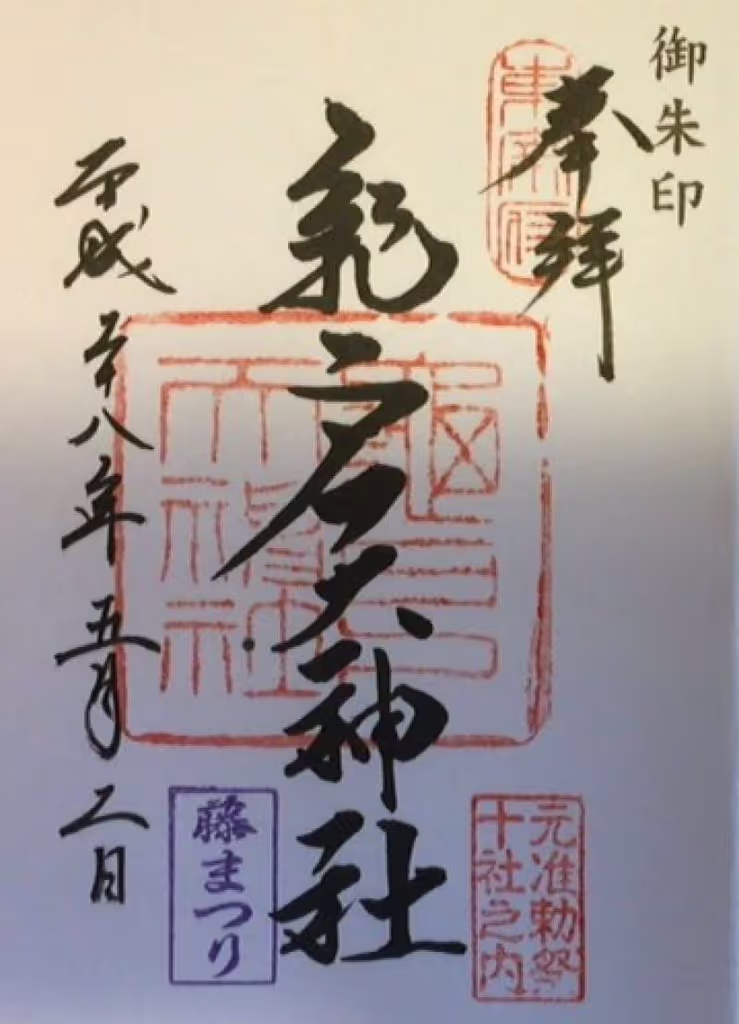 御朱印
奉拝
東宰府
亀戸天神社
龜戸
天神社
元准勅祭
十社之内
藤まつり
平成二十八年五月二日